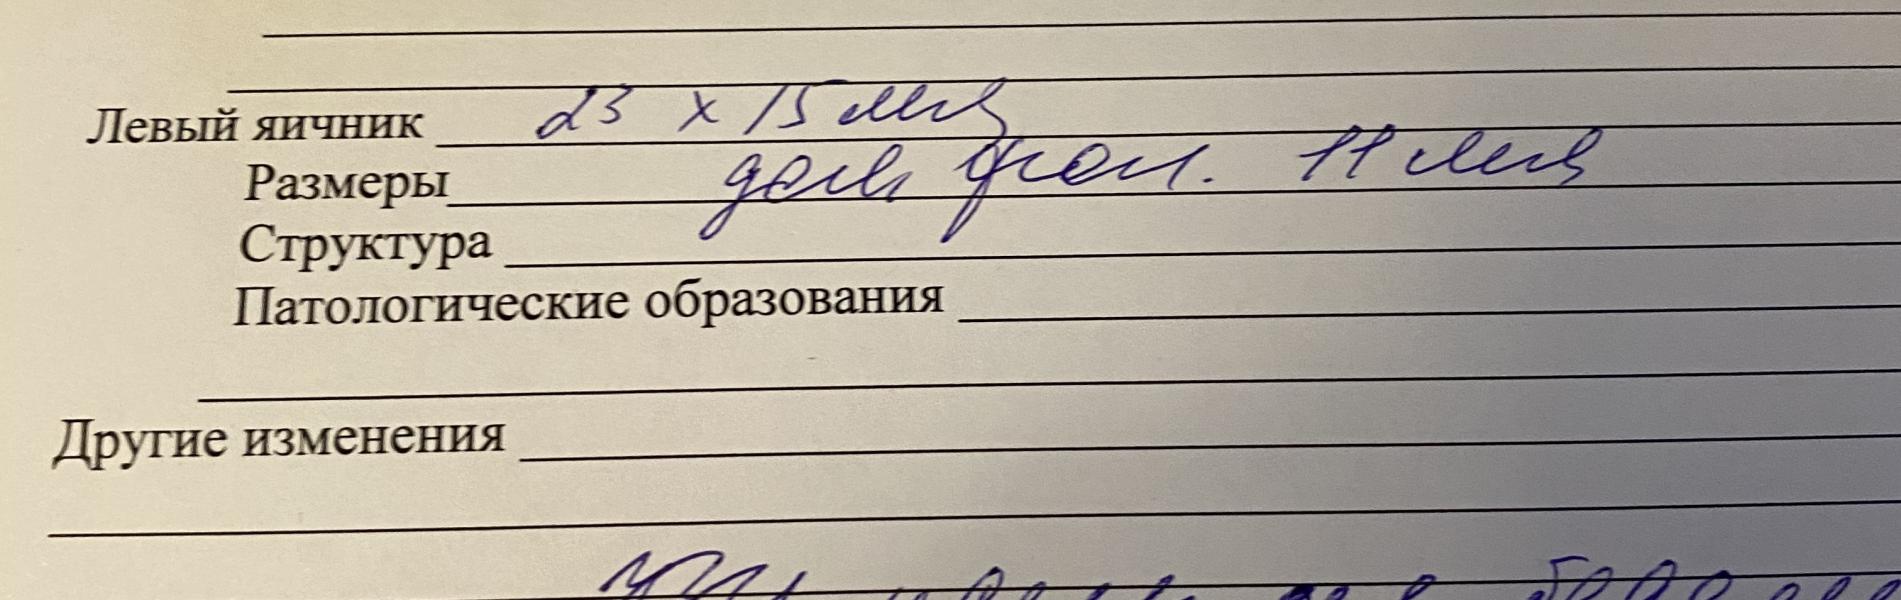 Левый яичник 23 х 15 мм
Размеры дом фол. 11 мм
Структура
Патологические образования
Другие изменения